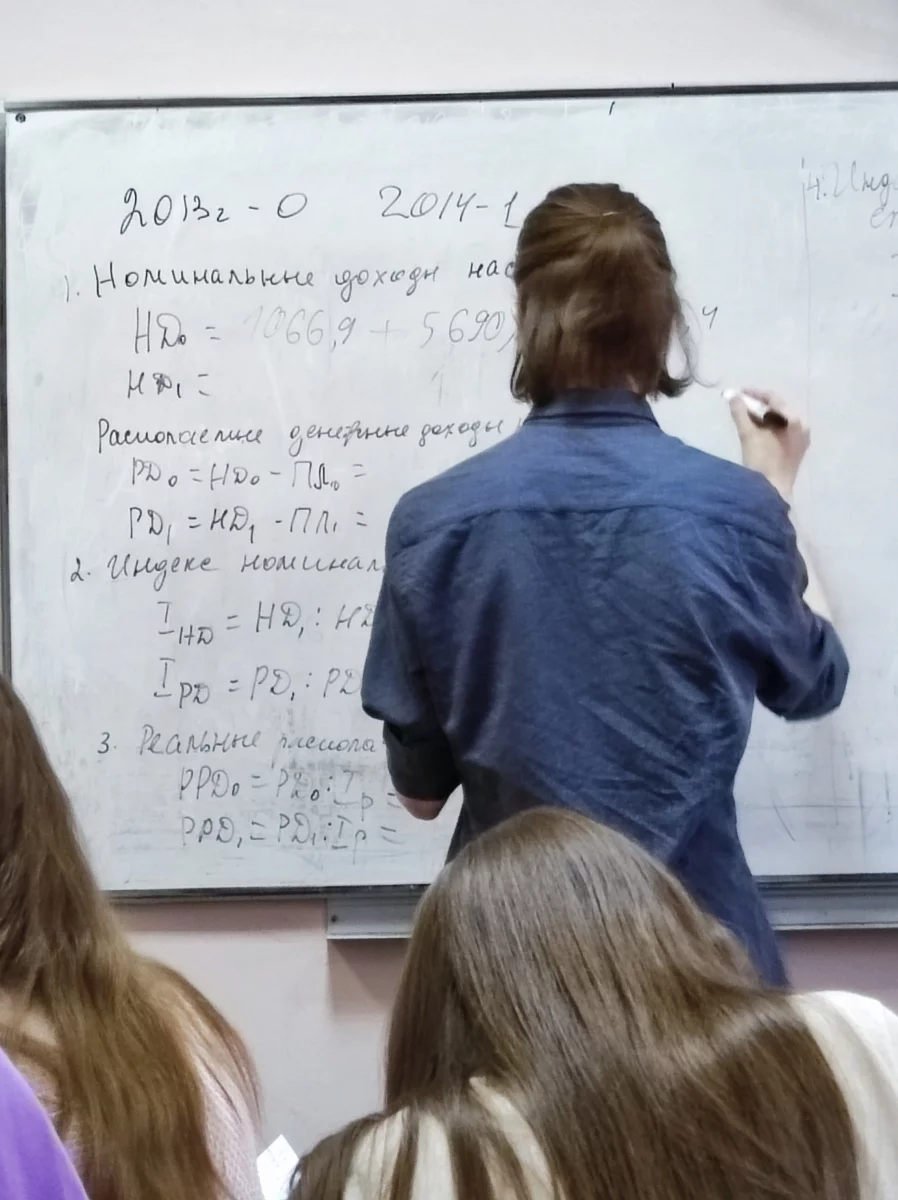 2013г - 0 2014 - 1
1. Номинальные доходы нас
НD₀ = 1066,9 + 5690, 4
НD₁ =
Располаемые денежные доходы
РD₀ = НD₀ - ПЛ₀ =
РD₁ = НD₁ - ПЛ₁ =
2. Индекс номинал
I_НD = НD₁ : НD
I_РD = РD₁ : РD
3. Реальные распола
РРD₀ = РD₀ : I_р =
РРD₁ = РD₁ : I_р =
4. Инд